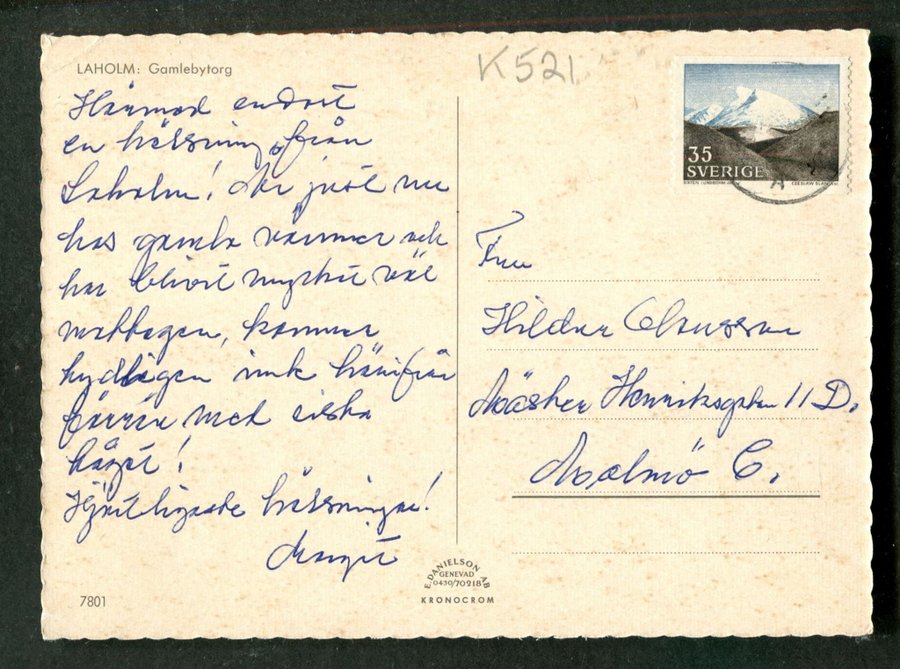 LAHOLM: Gamlebytorg
K521
Härmed endast
en hälsning från
Laholm! Är just nu
hos gamla vänner och
har blivit mycket väl
mottagen, kommer
tydligen inte härifrån
förrän med sista
tåget!
Hjärtligaste hälsningar!
Margit
7801
35
SVERIGE
CZESLAW SLANIA SC.
Fru
Hildur Claussen
Mäster Henriksgatan 11 D.
Malmö C.
E. DANIELSON AB
GENEVAD
0430/70218
KRONOCROM